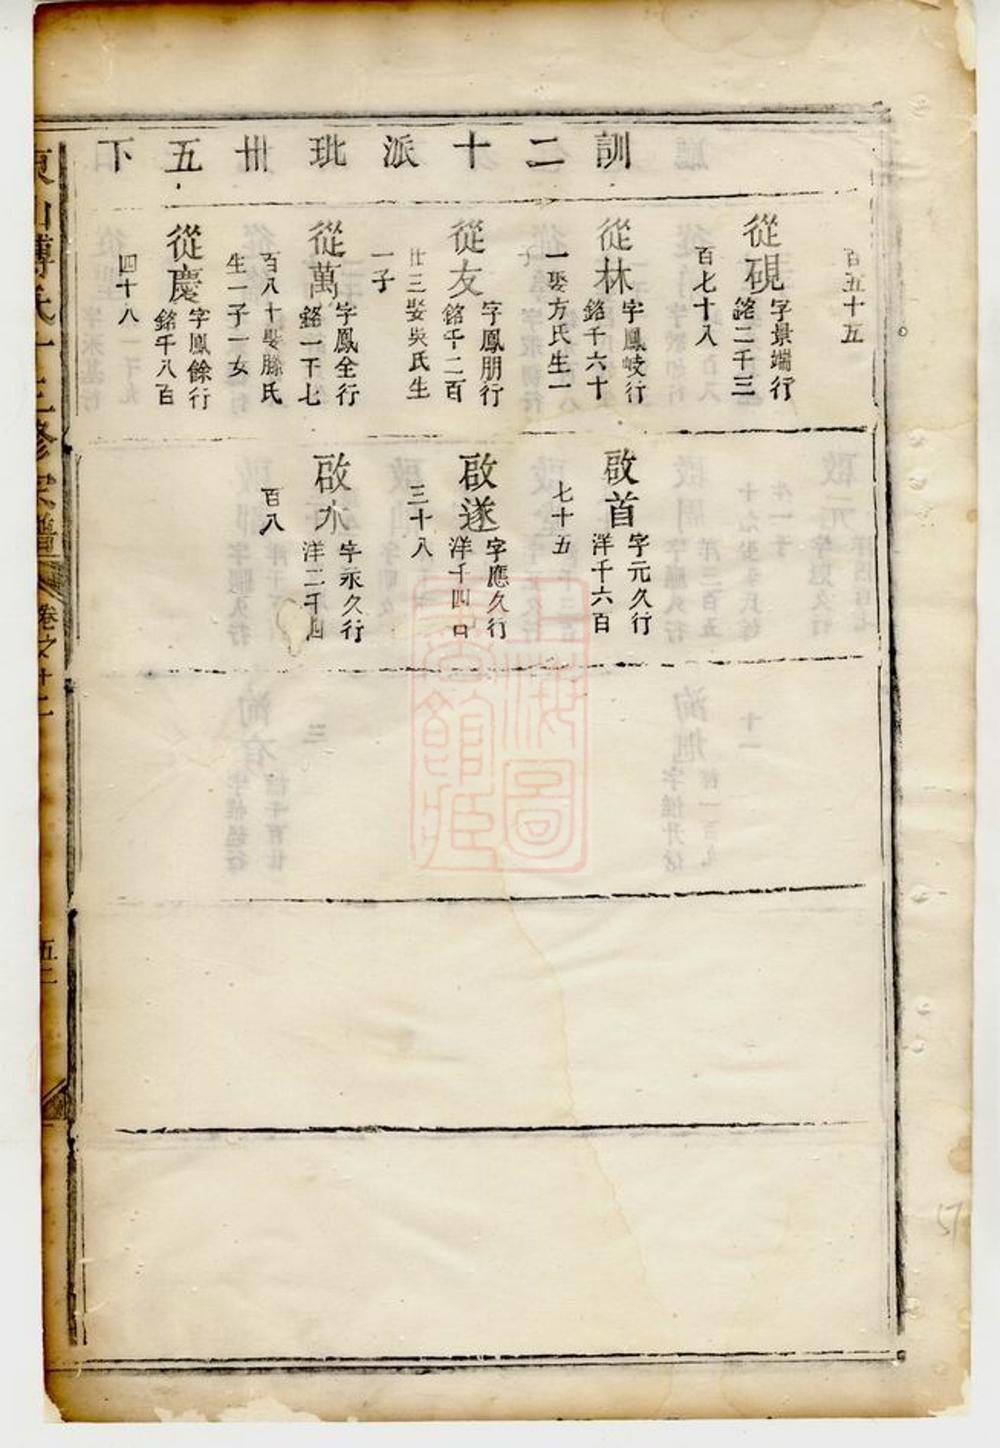 訓二十派玭卅五下
百五十五
從硯
字景端行
銘二千三
百七十八
從林
字鳳岐行
銘千六十
一娶方氏生一
子
從友
字鳳朋行
銘千二百
廿三娶吳氏生
一子
從萬
字鳳全行
銘一千七
百八十娶滕氏
生一子一女
從慶
字鳳餘行
銘千八百
四十八
啟首
字元久行
洋千六百
七十五
啟遂
字應久行
洋千四
三十八
啟水
字永久行
洋二千四
百八
東山
氏十三修宗譜
卷之十二
五二
上海圖書館藏
57